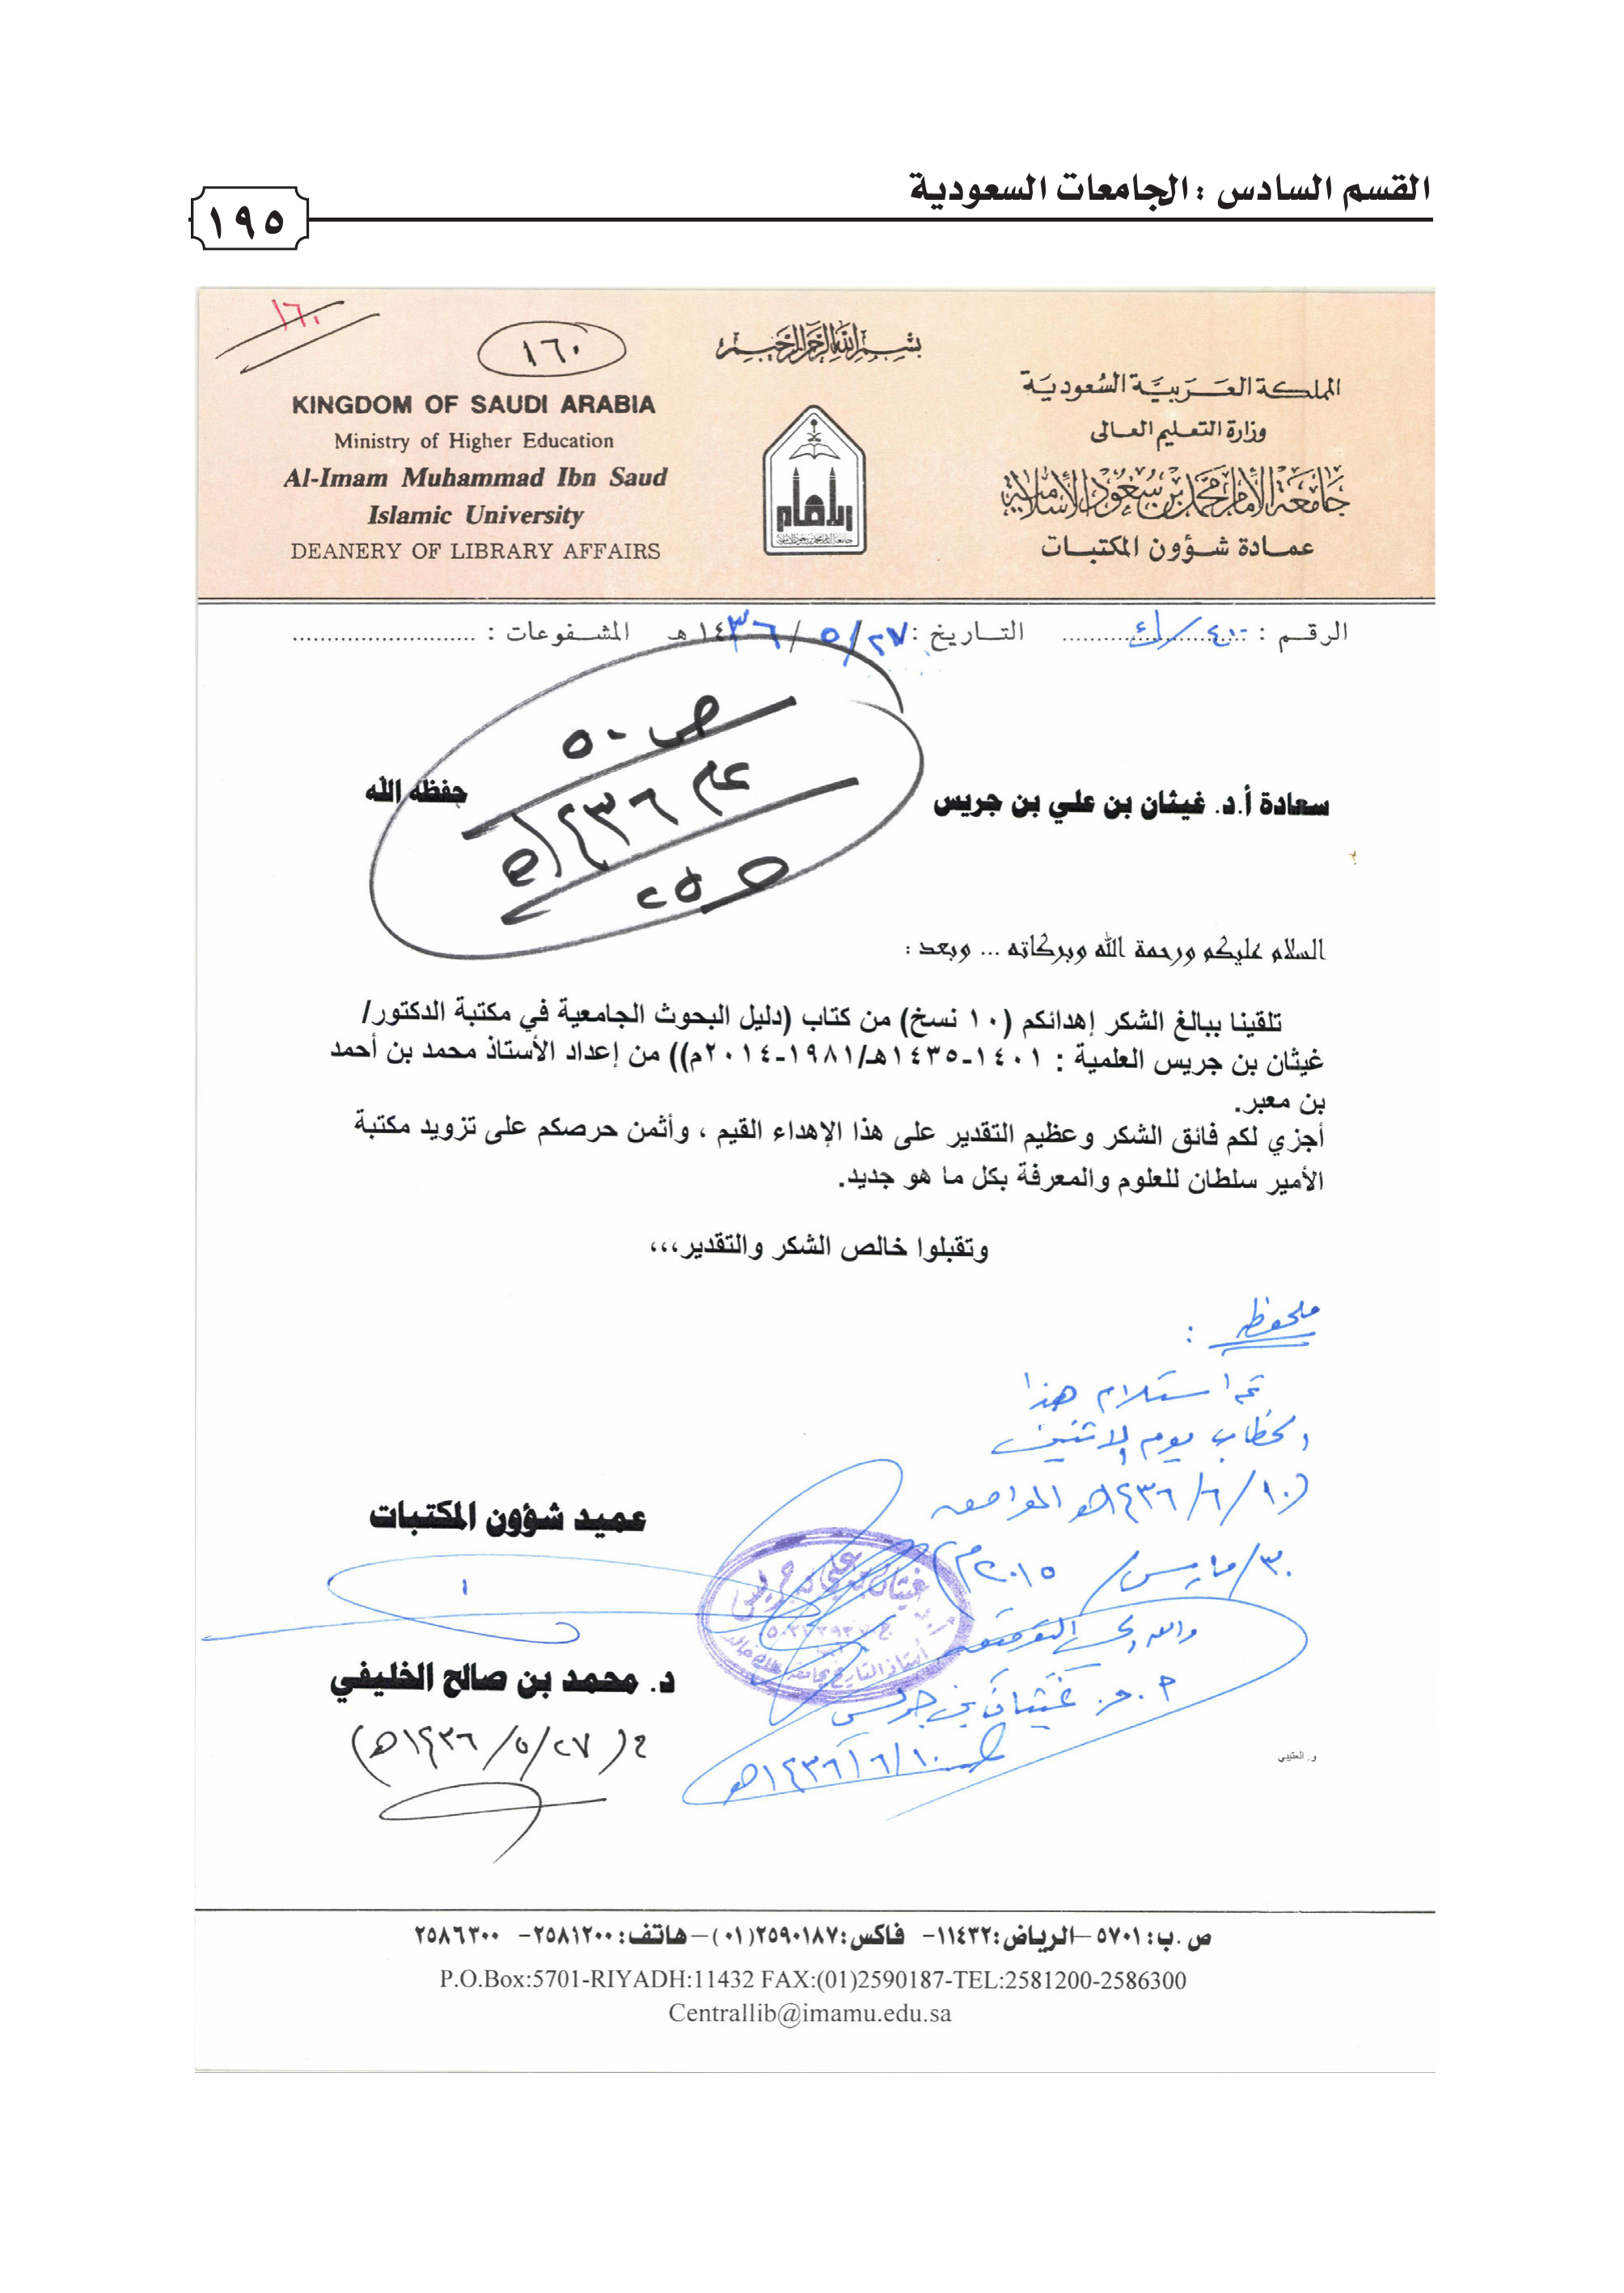 القسم السادس : الجامعات السعودية
١٩٥
١٦٠
١٦٠
بسم الله الرحمن الرحيم
KINGDOM OF SAUDI ARABIA
Ministry of Higher Education
Al-Imam Muhammad Ibn Saud
Islamic University
DEANERY OF LIBRARY AFFAIRS
المملكة العربية السعودية
وزارة التعليم العالى
جامعة الإمام محمد بن سعود الإسلامية
عمادة شؤون المكتبات
الرقم : التاريخ : ٢٧ / ٥ / ١٤٣٦ هـ المشفوعات :
سعادة أ.د. غيثان بن علي بن جريس حفظه الله
السلام عليكم ورحمة الله وبركاته ... وبعد :
تلقينا ببالغ الشكر إهدائكم (١٠ نسخ) من كتاب (دليل البحوث الجامعية في مكتبة الدكتور/
غيثان بن جريس العلمية : ١٤٠١-١٤٣٥هـ/١٩٨١-٢٠١٤م)) من إعداد الأستاذ محمد بن أحمد
بن معبر.
أجزي لكم فائق الشكر وعظيم التقدير على هذا الإهداء القيم ، وأثمن حرصكم على تزويد مكتبة
الأمير سلطان للعلوم والمعرفة بكل ما هو جديد.
وتقبلوا خالص الشكر والتقدير،،،
ملحوظه :
تم استلام هذا
الخطاب يوم الاثنين
(١٠/٦/١٤٣٦هـ الموافق
٣٠/مارس/٢٠١٥م)
والله ولي التوفيق
أ.د. غيثان بن جريس
١٠/٦/١٤٣٦هـ
عميد شؤون المكتبات
د. محمد بن صالح الخليفي
(٢٧/٥/١٤٣٦هـ)
و. العتيبي
ص.ب: ٥٧٠١ – الرياض: ١١٤٣٢ - فاكس: ٢٥٩٠١٨٧ (٠١) – هاتف: ٢٥٨١٢٠٠ - ٢٥٨٦٣٠٠
P.O.Box:5701-RIYADH:11432 FAX:(01)2590187-TEL:2581200-2586300
Centrallib@imamu.edu.sa